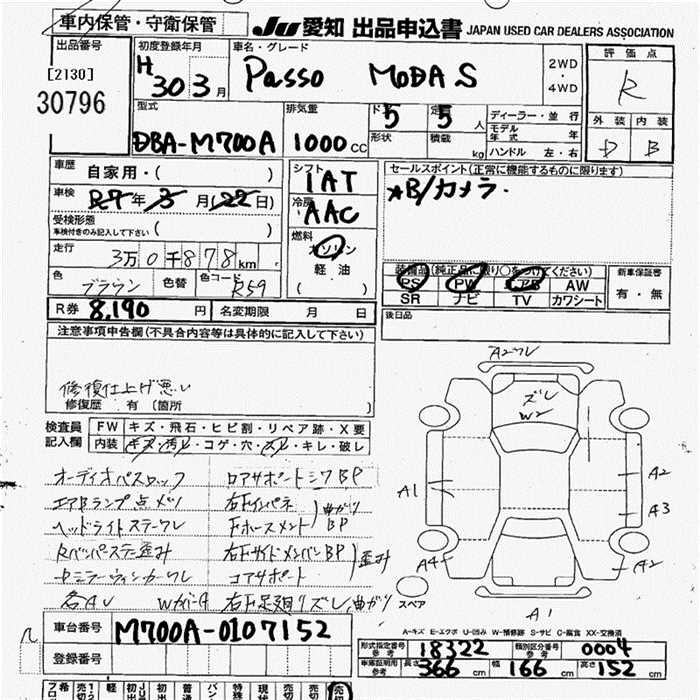 車内保管・守衛保管
JU 愛知 出品申込書 JAPAN USED CAR DEALERS ASSOCIATION
出品番号
[2130]
30796
初度登録年月
H30 3月
車名・グレード
Passo MODA S
2WD
・
4WD
評価点
R
外装 内装
D B
型式
DBA-M700A
排気量
1000cc
ド 5 定 5人
形状 積載 kg
ディーラー・並行
モデル年式 年
ハンドル 左・右
車歴 自家用・( )
車検 R7年3月(22日)
受検形態
車検付きのみ記入して下さい ( )
走行 3万0千878km
色 ブラウン 色替 色コード R59
シフト
IAT
冷房
AAC
燃料
ガソリン
軽油
( )
セールスポイント(正常に機能するものに限ります)
★B/カメラ・
装備品(純正品に限り○をつけてください)
PS PW エアB AW
SR ナビ TV カワシート
新車保証書
有・無
R券 8,190円 名変期限 月 日
後日品
注意事項申告欄(不具合内容等は具体的に記入して下さい)
修復仕上げ悪い
修復歴 有 (箇所 )
検査員記入欄
FW キズ・飛石・ヒビ割・リペア跡・X要
内装 キズ・汚レ・コゲ・穴・スレ・キレ・破レ
オーディオパスロック
エアBランプ点メツ
ヘッドライトステーワレ
Rバンパーステー歪み
ヒミラーウィンカーワレ
各AU Wガバ-A
コアサポートシワBP
右Fインパネ
Fホースメント)曲がりBP
右FサイドメンバンBP
コアサポート)歪み
右F足廻リズレ/曲ガリ
A2ワレ
ズレ
W2
A1
A2
A3
A4
A2
A1
スペア
A-キズ E-エクボ U-凹み W-補修跡 S-サビ C-腐食 XX-交換済
車台番号 M700A-0107152
登録番号
形式指定番号参考 18322 類別区分番号参考 0004
車庫証明用参考 長さ 366cm 幅 166cm 高さ 152cm